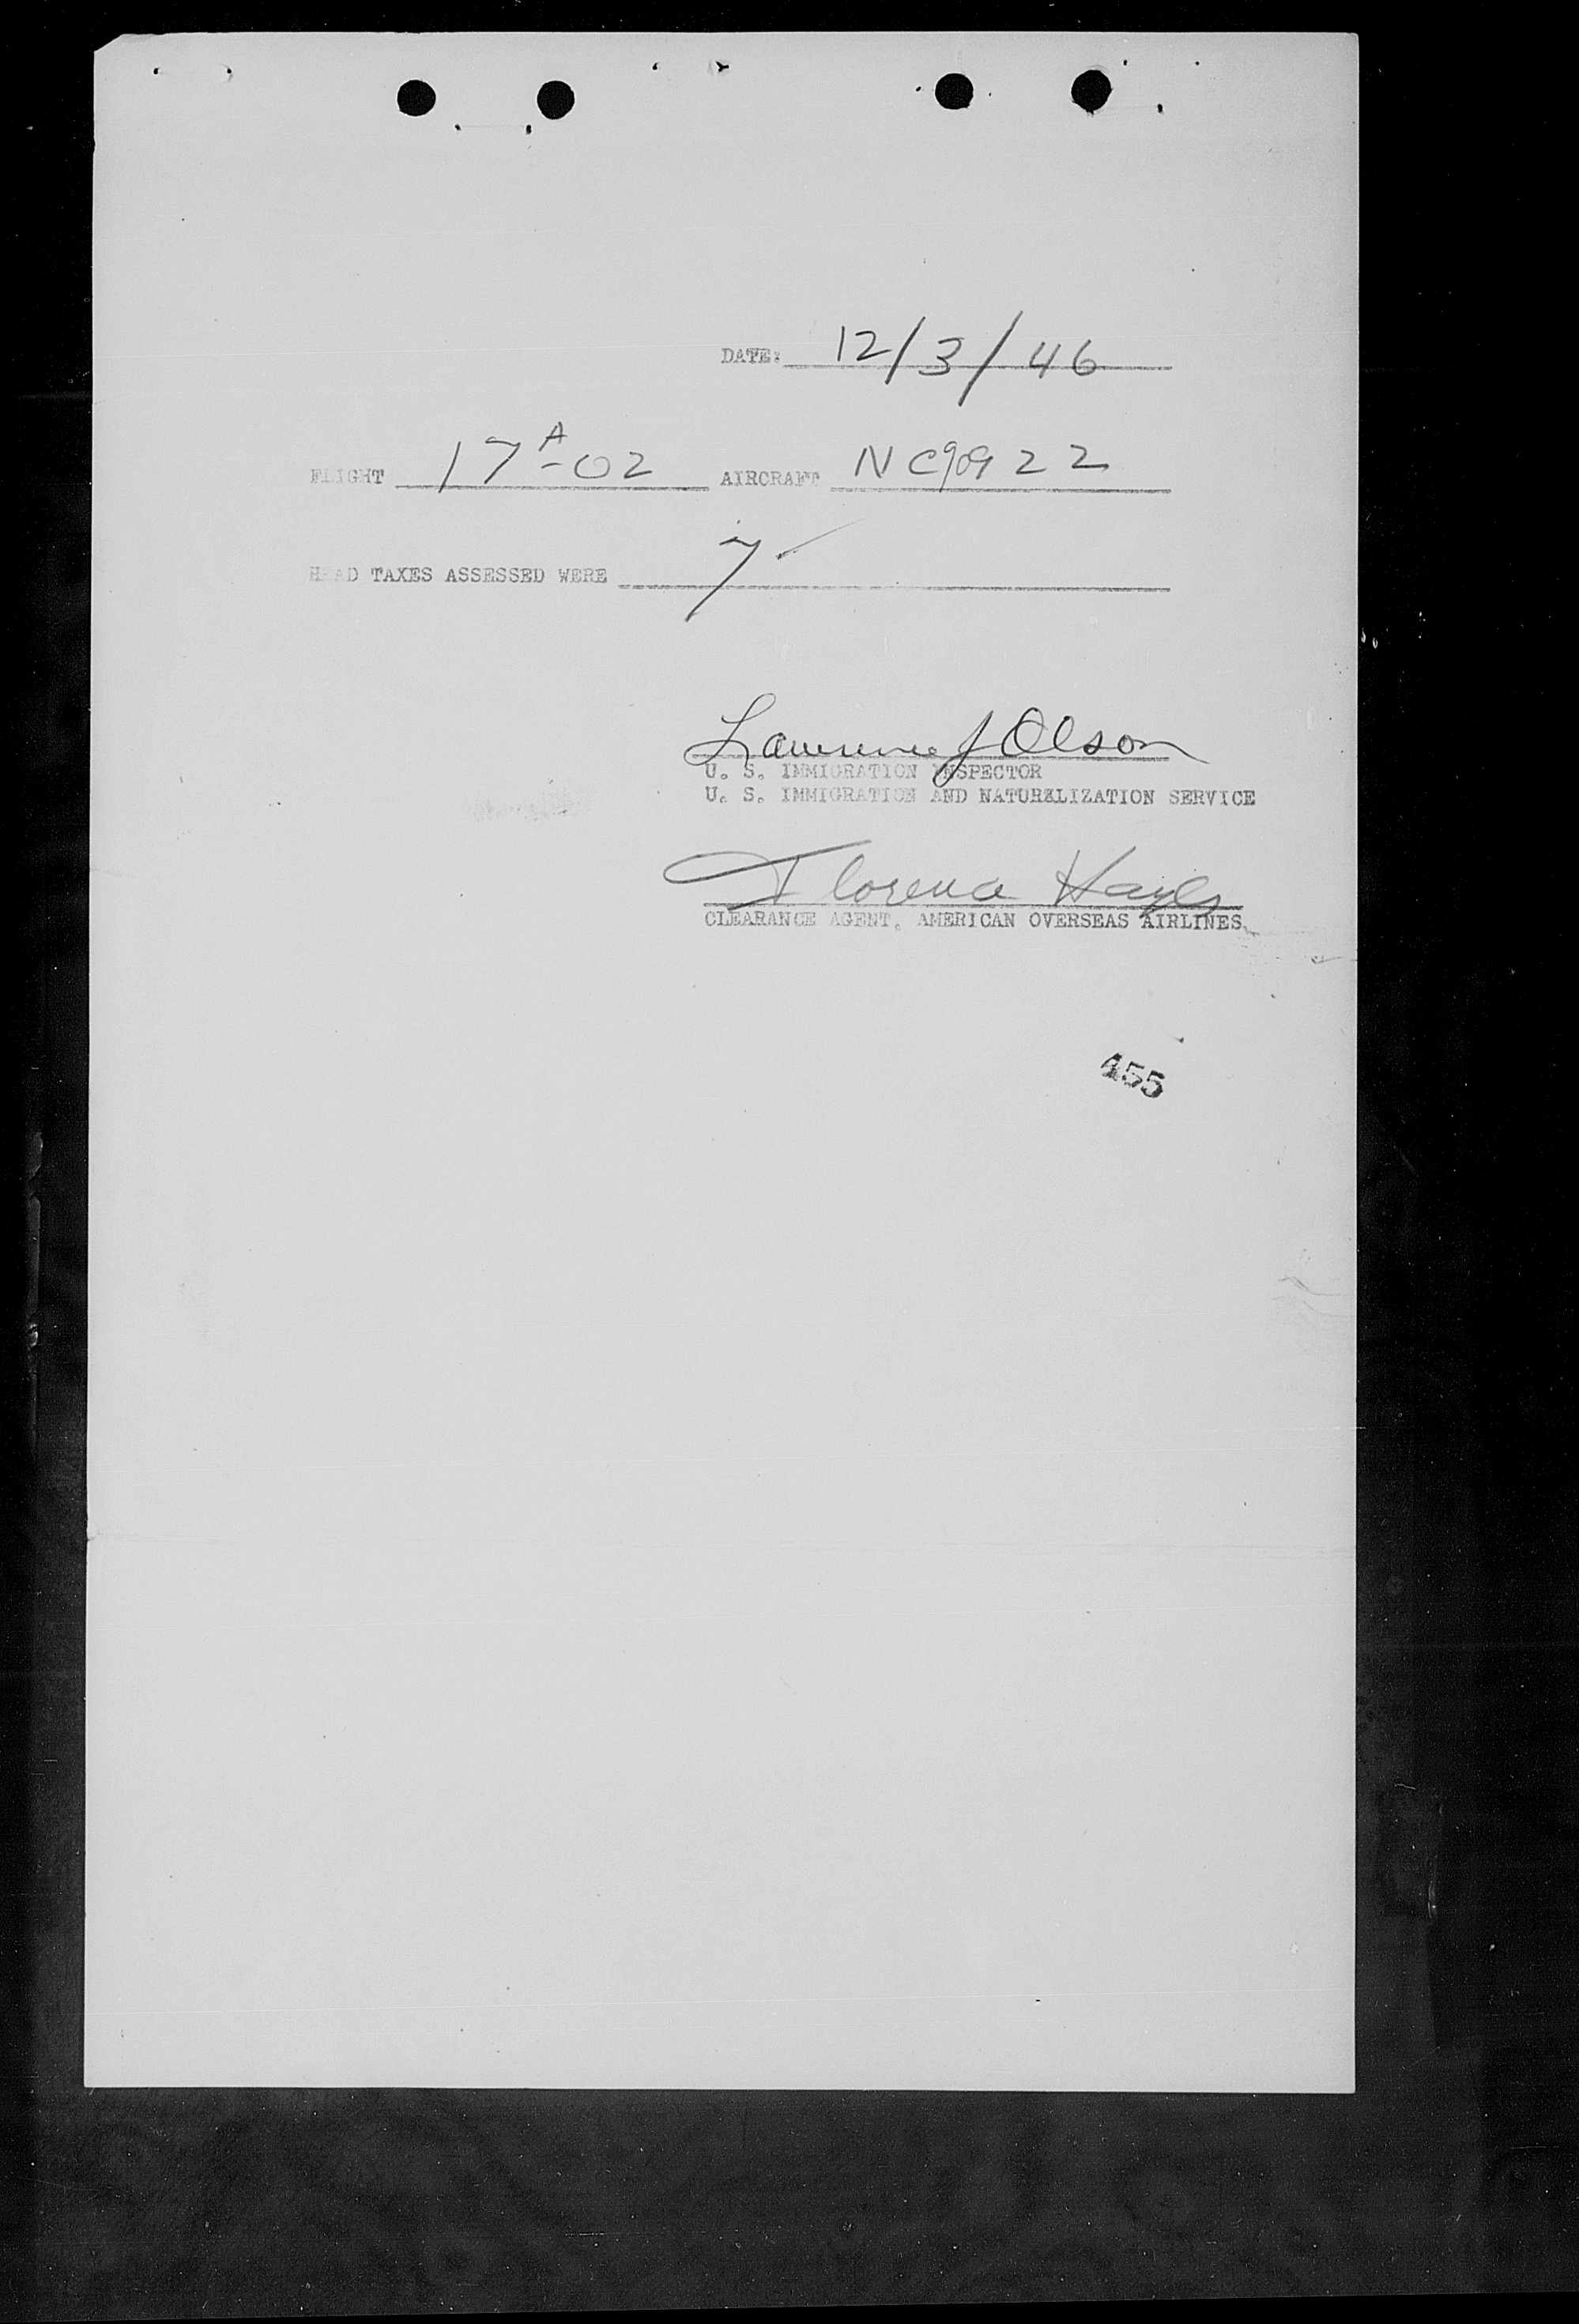 DATE: 12/3/46
FLIGHT 17A-02 AIRCRAFT NC90922
HEAD TAXES ASSESSED WERE 7
Lawrence J Olson
U. S. IMMIGRATION INSPECTOR
U. S. IMMIGRATION AND NATURALIZATION SERVICE
Florence Hayes
CLEARANCE AGENT, AMERICAN OVERSEAS AIRLINES
455